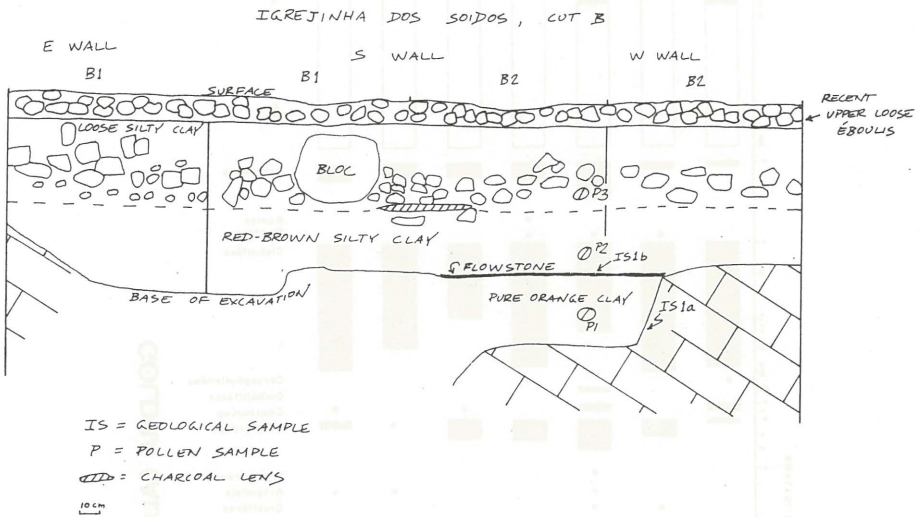 IGREJINHA DOS SOIDOS, CUT B
E WALL
S WALL
W WALL
B1
B1
B2
B2
SURFACE
RECENT
UPPER LOOSE
ÉBOULIS
LOOSE SILTY CLAY
BLOC
P3
RED-BROWN SILTY CLAY
P2
IS1b
FLOWSTONE
BASE OF EXCAVATION
PURE ORANGE CLAY
IS1a
P1
IS = GEOLOGICAL SAMPLE
P = POLLEN SAMPLE
= CHARCOAL LENS
10 cm